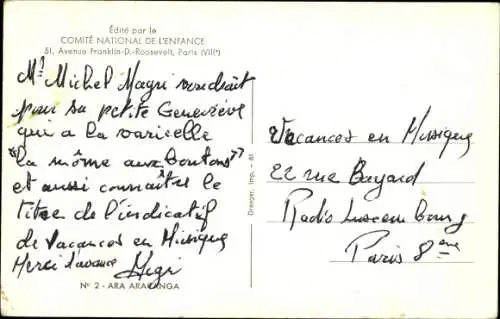 Édité par le
COMITÉ NATIONAL DE L'ENFANCE
51, Avenue Franklin-D.-Roosevelt, Paris (VIIIᵉ)
Mʳ Michel Magri voudrait
pour sa petite Geneviève
qui a la varicelle
"la môme aux boutons"
et aussi connaître le
titre de l'indicatif
de Vacances en Musique
Merci d'avance Magri
Draeger, Imp. - 51.
Vacances en Musique
22 rue Bayard
Radio Luxembourg
Paris 8ème
Nº 2 - ARA ARACANGA